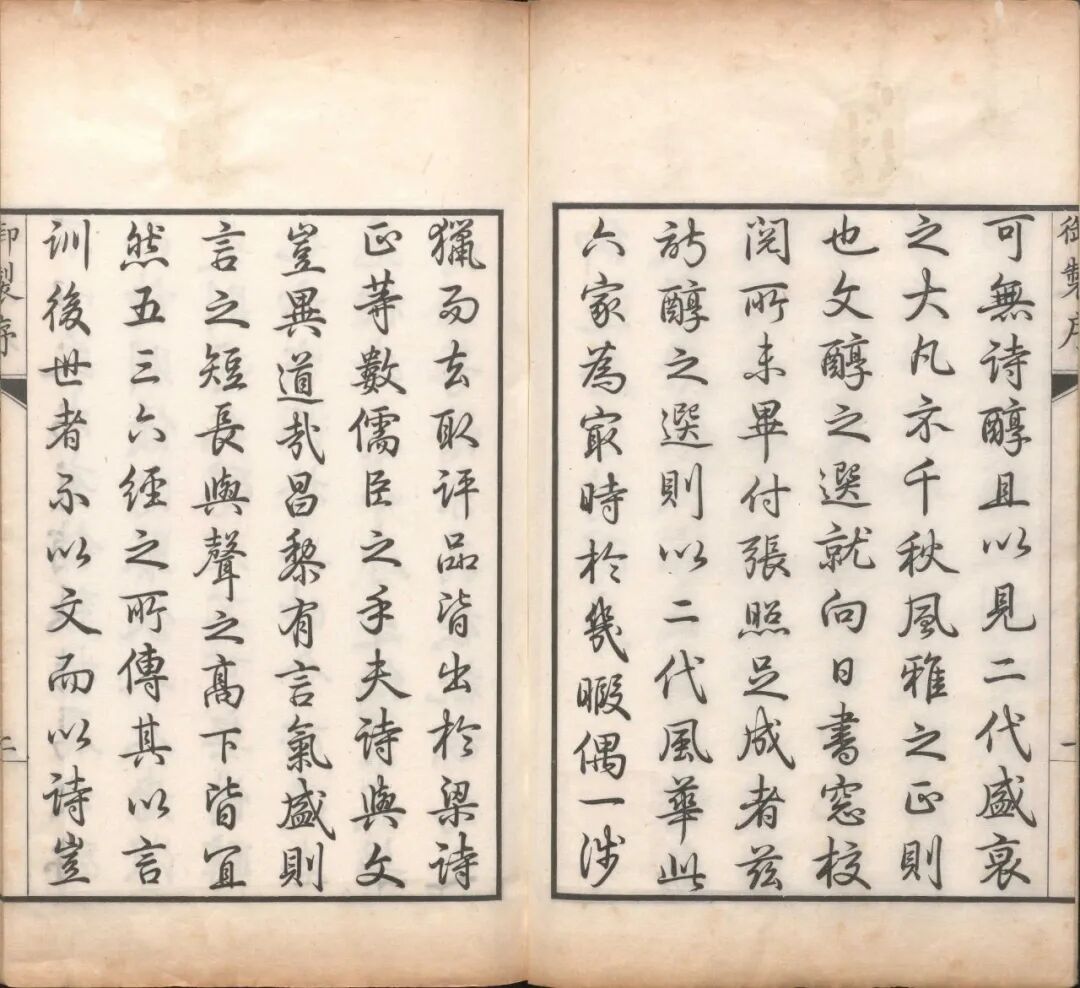 御製序
一
可無詩醇且以見二代盛衰
之大凡示千秋風雅之正則
也文醇之選就向日書窓校
閱所未畢付張照足成者茲
詩醇之選則以二代風華此
六家為最時於幾暇偶一涉
獵而去取評品皆出於梁詩
正等數儒臣之手夫詩與文
豈異道哉昌黎有言氣盛則
言之短長與聲之高下皆宜
然五三六經之所傳其以言
訓後世者不以文而以詩豈
御製序
二